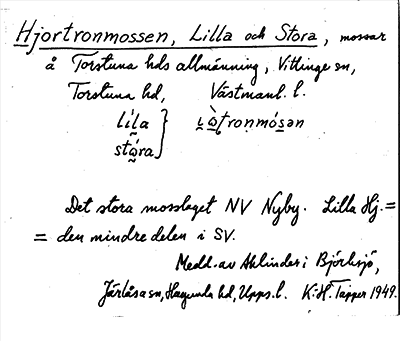 Hjortronmossen, Lilla och Stora, mossar
å Torstuna hds allmänning, Vittinge sn,
Torstuna hd, Västmanl. l.
líla
stǻra
Det stora mosslaget NV Nyby. Lilla Hj. =
= den mindre delen i SV.
Medd. av Ahlinder i Björksjö,
Järlåsa sn, Hagunda hd, Upps. l. K.H. Tapper 1949.